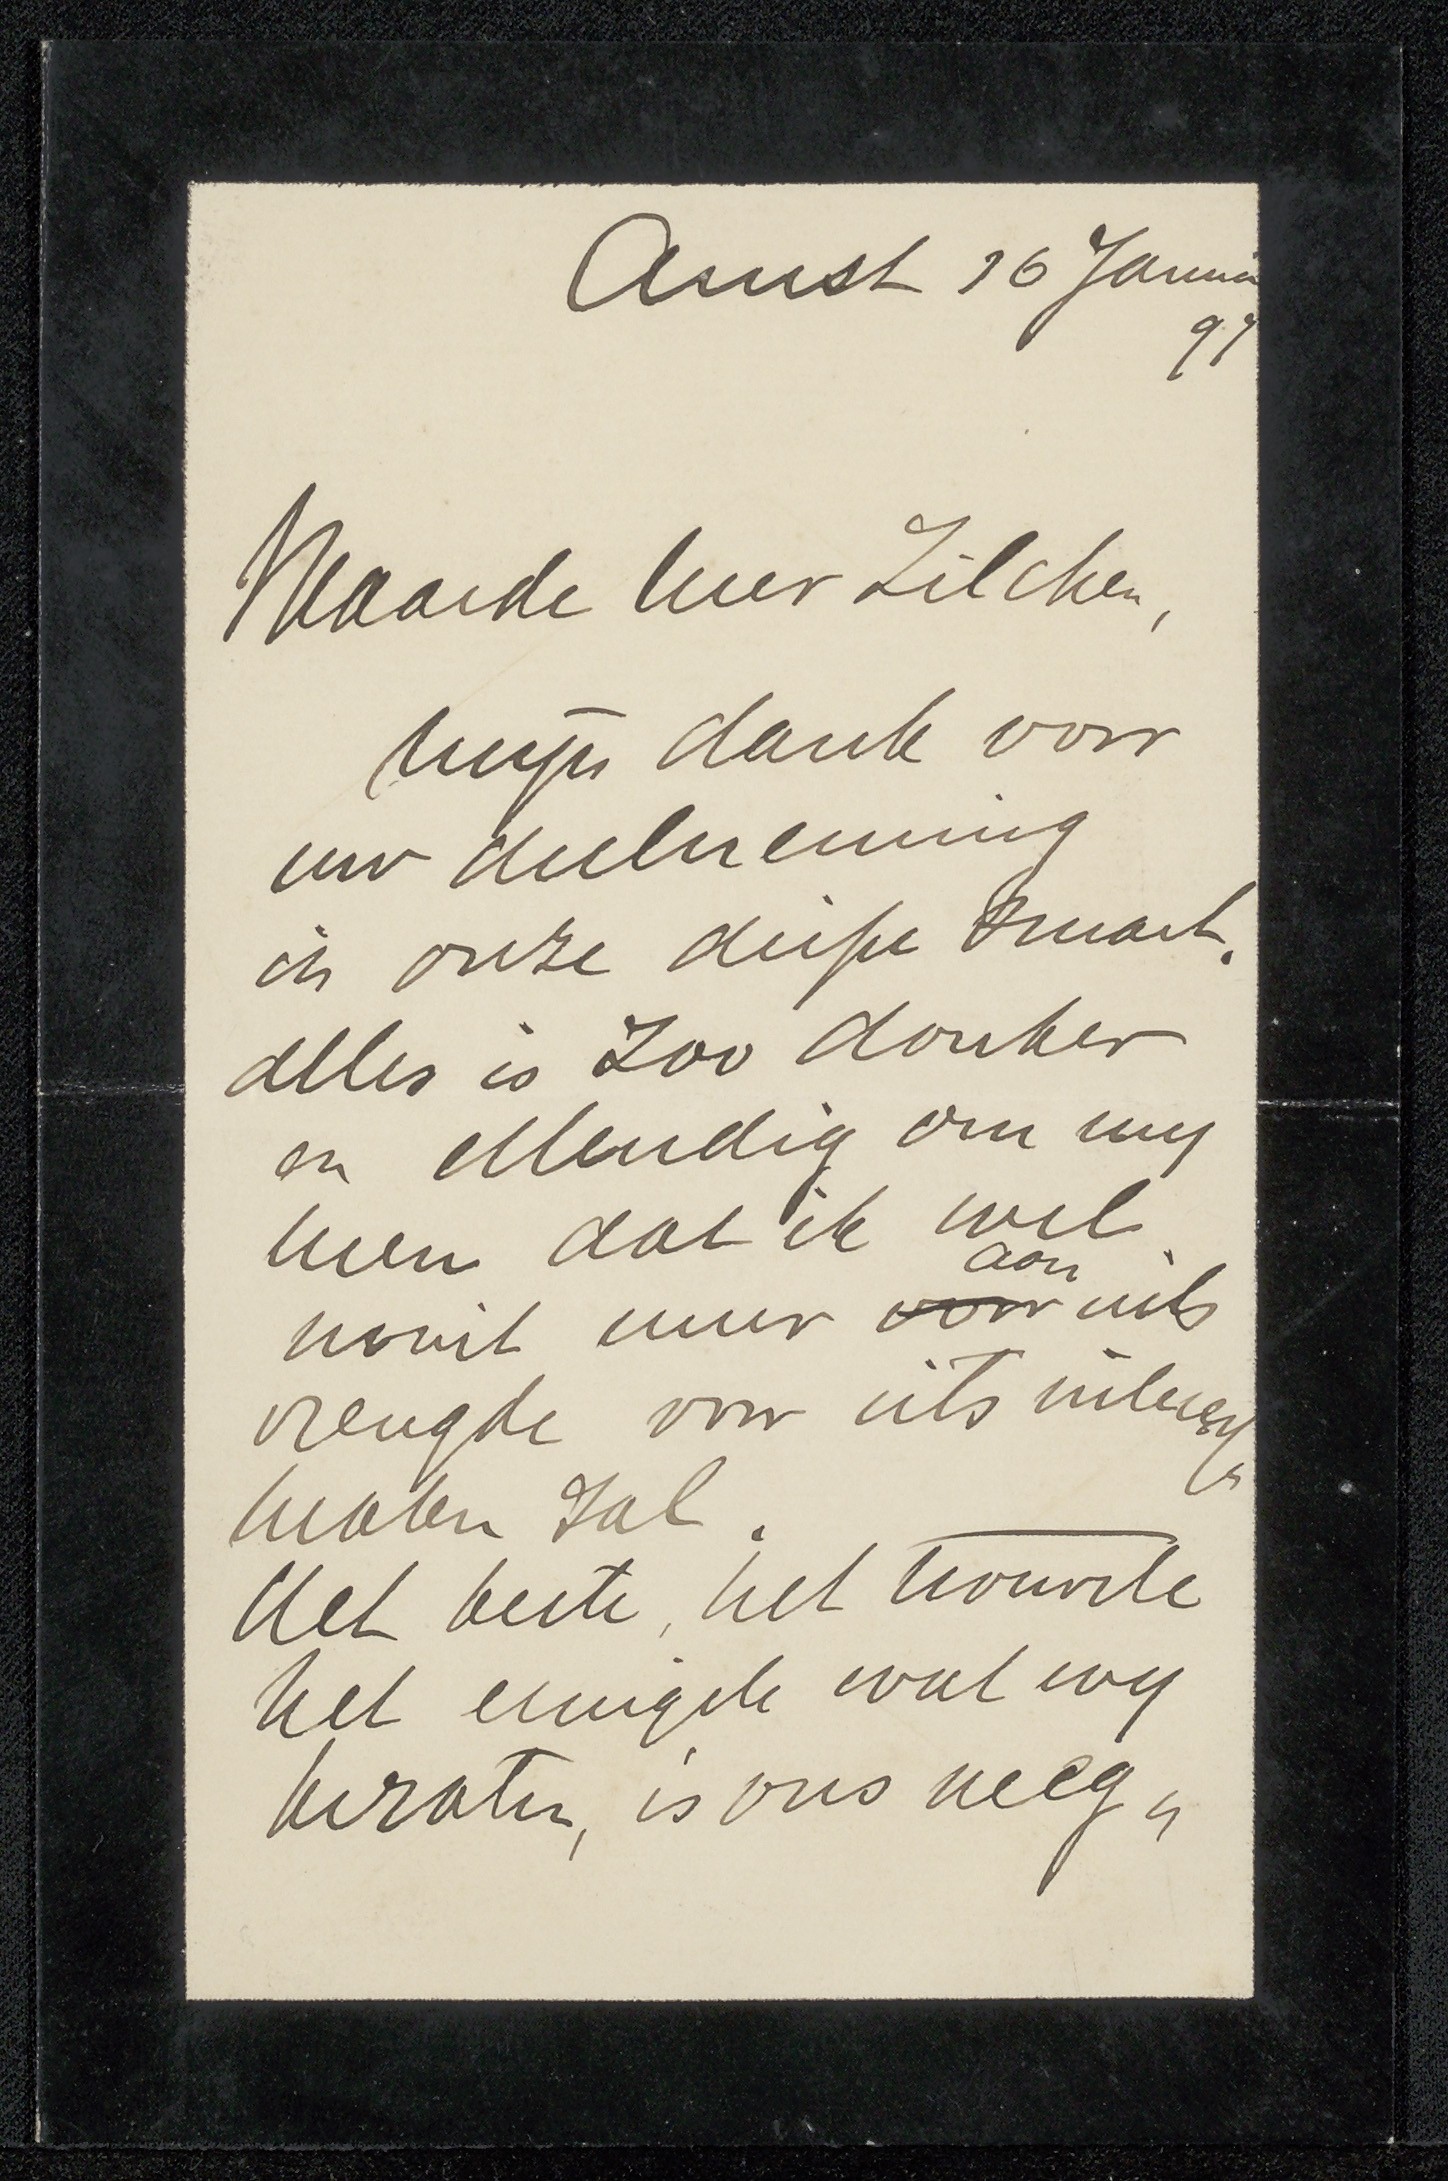 Amst 16 Januari
97
Waarde heer Zilcken,
mijn dank voor
uw deelneming
in onze diepe smart.
Alles is zoo donker
en ellendig om my
heen dat ik wel
aan
nooit meer voor iets
vreugde voor iets
maken zal.
Het beste, het trouwste
het eenigste wat wy
bezaten, is ons weg